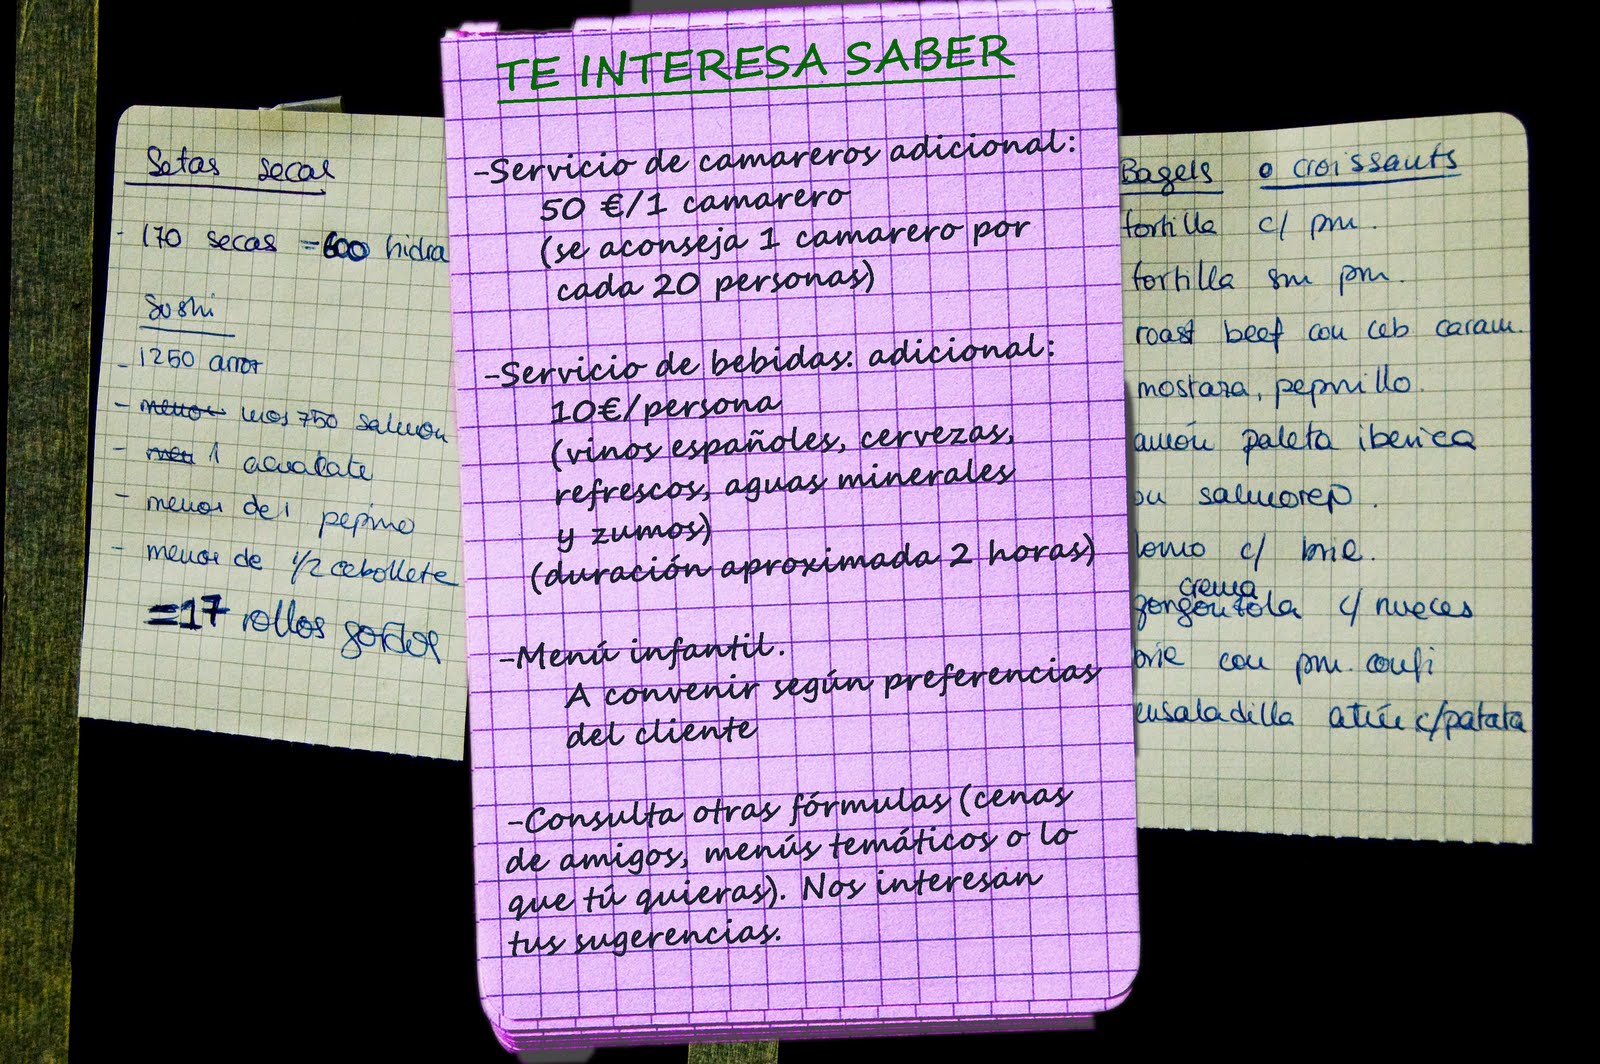 Setas secas
- 170 secas =600 hidra
Sushi
- 1250 arroz
- mos 750 salmon
- 1 acuacate
- menos de 1 pepino
- menos de 1/2 cebollete
=17 rollos gordos
TE INTERESA SABER
-Servicio de camareros adicional:
50 €/1 camarero
(se aconseja 1 camarero por
cada 20 personas)
-Servicio de bebidas: adicional:
10€/persona
(vinos españoles, cervezas,
refrescos, aguas minerales
y zumos)
(duración aproximada 2 horas)
-Menú infantil.
A convenir según preferencias
del cliente
-Consulta otras fórmulas (cenas
de amigos, menús temáticos o lo
que tú quieras). Nos interesan
tus sugerencias.
Bagels o croissants
tortilla c/ pm.
tortilla sin pm.
roast beef con ceb caram.
mostaza, pepinillo.
amón paleta iberica
on salmorep.
lomo c/ brie.
crema
gorgonzola c/ nueces
brie con pm. confi
ensaladilla atún c/patata